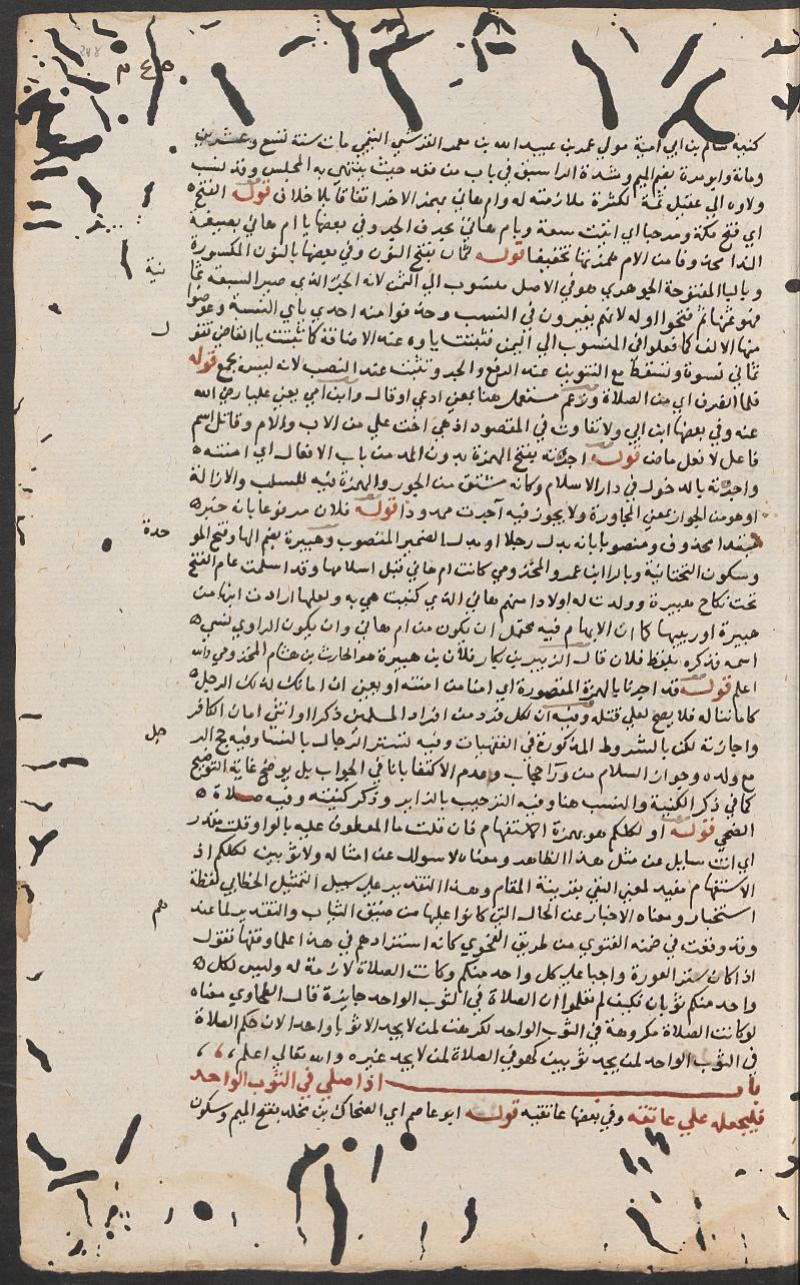 كنية سالم بن ابي امية مولي عمر بن عبيد الله بن معمر القرشي التيمي مات سنة تسع وعشرين
ومائة وابو مرة بضم الميم وشدة الرا سبق في باب من قعد حيث ينتهي به المجلس وقد نسب
ولاوه الي عقيل ثمة لكثرة ملازمته له وام هاني بهمز الاخر اتفاقا بلا خلاف قوله الفتح
اي فتح مكة ومرحبا اي اتيت سعة ويام هاني بحرف الجر وفي بعضها يا ام هاني بصيغة
الندا محذوفا من الام همزتها تخفيفا قوله ثمان بفتح النون وفي بعضها بالنون المكسورة
وباليا المفتوحة الجوهري هو في الاصل منسوب الي الثمن لانه الجزء الذي صير السبعة ثما
نية
فهو ثمنها ثم فتحوا اوله لانهم يغيرون في النسب وحذفوا منه احدي ياي النسبة وعوضوا
منها الالف كما فعلوا في المنسوب الي اليمن فثبتت ياوه عند الاضافة كما تثبت يا القاضي تقو
ل
ثماني نسوة وتسقط مع التنوين عند الرفع والجر وتثبت عند النصب لانه ليس بجمع قوله
فلما انصرف اي من الصلاة وزعم مستعمل هنا بمعني ادعي او قال وابن امي يعني عليا رضي الله
عنه وفي بعضها ابن ابي ولا تفاوت في المقصود اذ هي اخت علي من الاب والام وقاتل اسم
فاعل لا فعل ماض قوله اجرته بفتح الهمزة بدون المد من باب الافعال اي امنته
واجزته بالدخول في دار الاسلام وكانه مشتق من الجور والهمزة فيه للسلب والازالة
او هو من الجوار بمعني المجاورة ولا يجوز فيه آجرت ممدودا قوله فلان مرفوعا بانه خبر
مبتدا محذوف ومنصوبا بانه بدل رجلا او بدل الضمير المنصوب وهبيرة بضم الها وفتح المو
حدة
وسكون التحتانية وبالرا ابن عمرو المخزومي كانت ام هاني قبل اسلامها وقد اسلمت عام الفتح
تحت نكاح هبيرة وولدت له اولادا منهم هاني الذي كنيت هي به ولعلها ارادت ابنها من
هبيرة او ربيبها كما ان الابهام فيه محتمل ان يكون من ام هاني وان يكون الراوي نسي
اسمه فذكره بلفظ فلان قال الزبير بن بكار فلان بن هبيرة هو الحارث بن هشام المخزومي والله
اعلم قوله قد اجرنا بالهمزة المقصورة اي امنا من امنته او بمعني ان امانك لذلك الرجل
كاماننا له فلا يصح لعلي قتله وفيه ان لكل فرد من افراد المسلمين ذكرا او انثي امان الكافر
واجازته لكن بالشروط المذكورة في الفقهيات وفيه تستر الرجال بالنسا وفيه ح الر
جل
مع ولده وجواز السلام من ورا حجاب وعدم الاكتفا بانا في الجواب بل يوضح غاية التوضيح
كما في ذكر الكنية والنسب هنا وفيه الترحيب بالزاير وذكر كنيته وفيه صلاة
الضحي قوله او لكلكم هو بهمزة الاستفهام فان قلت ما المعطوف عليه بالواو قلت مقدر
اي انت سايل عن مثل هذا الظاهر ومعناه لا سوال عن امثاله ولا ثوبين لكلكم اذ
الاستفهام مفيد لمعني النفي بقرينة المقام وهذا التقدير علي سبيل التمثيل الخطابي لفظة
استخبار ومعناه الاخبار عن الحال التي كانوا عليها من ضيق الثياب والتقدير لما عند
هم
وقد وقعت في ضمنه الفتوي من طريق الفحوي كانه استزادهم في هذا علما وفقها تقول
اذا كان ستر العورة واجبا علي كل واحد منكم وكانت الصلاة لازمة له وليس لكل
واحد منكم ثوبان فكيف لم تعلموا ان الصلاة في الثوب الواحد جايزة قال الطحاوي معناه
لو كانت الصلاة مكروهة في الثوب الواحد لكرهت لمن لا يجد الا ثوبا واحدا لان حكم الصلاة
في الثوب الواحد لمن يجد ثوبين كهو في الصلاة لمن لا يجد غيره والله تعالي اعلم
باب اذا صلي في الثوب الواحد
فليجعله علي عاتقه وفي بعضها عاتقيه قوله ابو عاصم اي الضحاك بن مخلد بفتح الميم وسكون